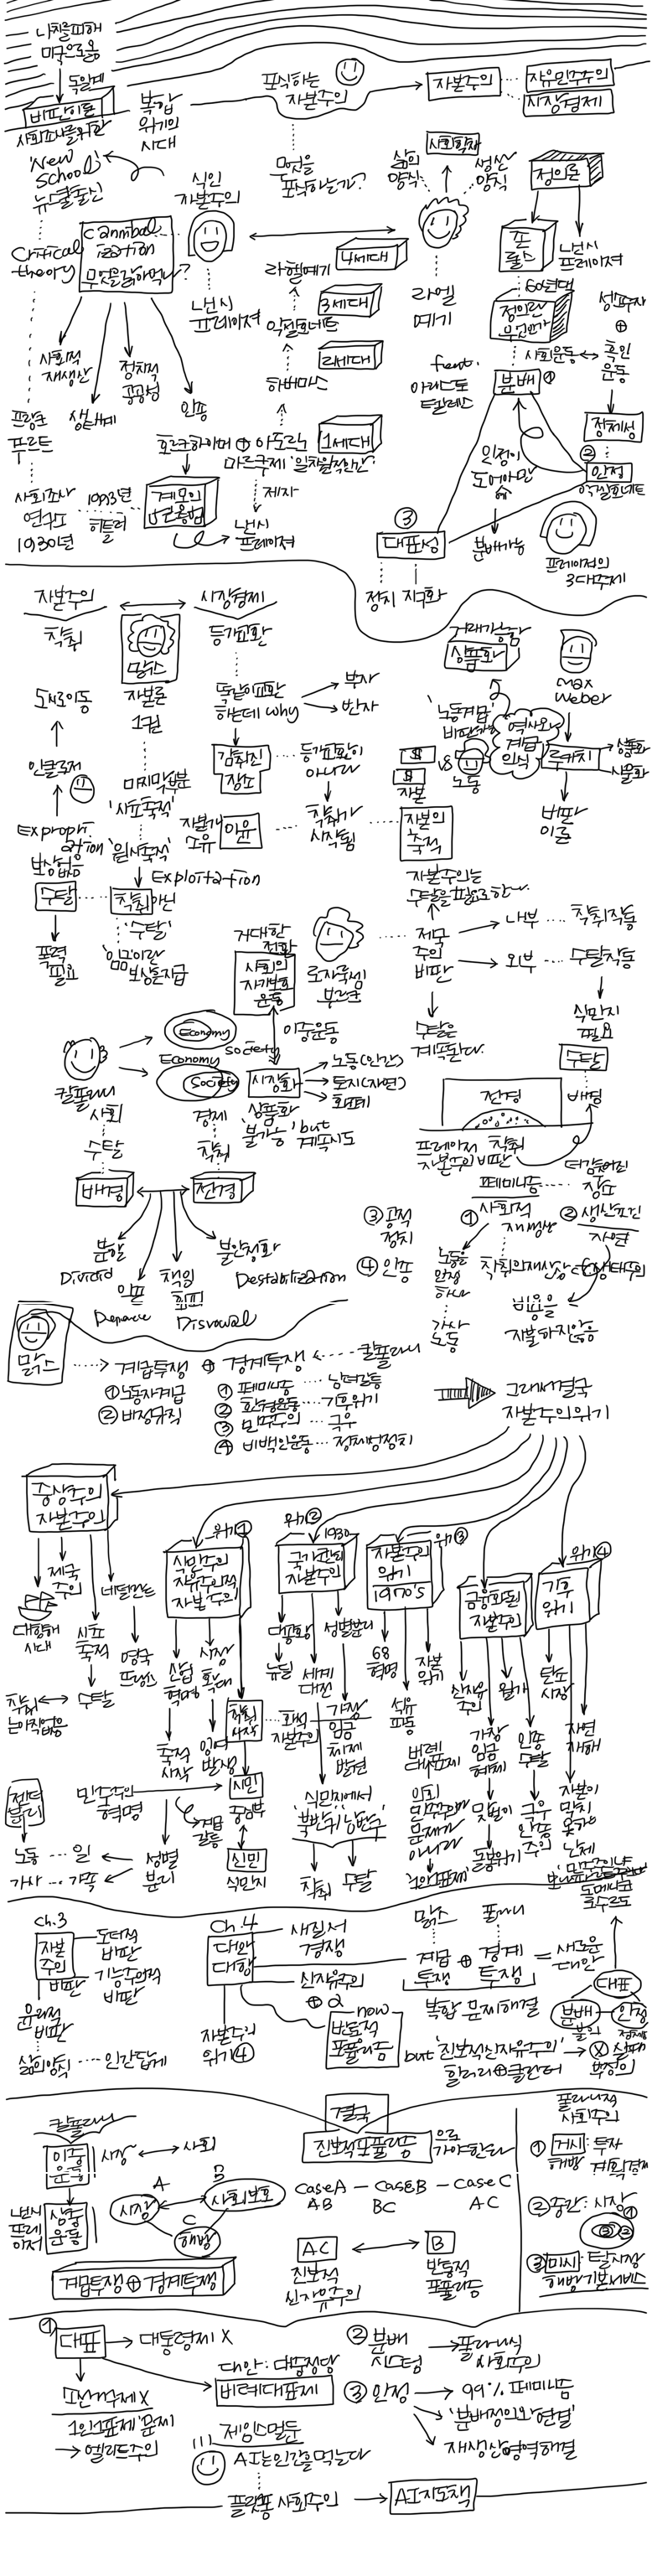 나치를피해
미국으로옴
독일계
비판이론
사회조사를위한
'New
School'
뉴스쿨출신
복합
위기의
시대
포식하는
자본주의
자본주의
자유민주주의
시장경제
무엇을
포식하는가?
식인
자본주의
Cannibal
ization
무엇을갉아먹나?
Critical
theory
낸시
프레이져
사회적
재생산
생태계
정치적
공공성
인종
프랑크
푸르트
사회조사
연구소
1930년
1933년
히틀러
호르크하이머 ⊕ 아도르노
마르쿠제 '일차원적인간'
계몽의
변증법
제자
낸시
프레이져
1세대
2세대
3세대
4세대
하버마스
악셀호네트
라헬예기
사회학자
삶의
양식
생산
양식
라엘
예기
정의론
존
롤스
낸시
프레이져
60년대
정의란
무엇인가
사회운동
성소수자
⊕
흑인
운동
feat.
아리스토
텔레스
분배 ①
정체성
②
인정
악셀호네트
인정이
도어야만
분배가능
③
대표성
정치 지구화
프레이져의
3대주제
자본주의
착취
시장경제
등가교환
맑스
자본론
1권
똑같이교환
하는데 why
부자
빈자
도시로이동
인클로저
Expropri
ation
보상없음
수탈
폭력
필요
마지막부분
'시초축적'
'원시축적'
Exploitation
착취아닌
'수탈'
'임금'이란
보상을지급
감춰진
장소
등가교환이
아니라
자본가
소유
이윤
착취가
시작됨
자본의
축적
거래가능함
상품화
Max
Weber
'노동계급'
역사와
계급
의식
루카치
비판
이론
자본
vs
노동
자본주의는
수탈을필요로한다.
제국
주의
비판
내부
착취작동
외부
수탈작동
로자룩셈
부르크
수탈은
계속된다.
식민지
필요
수탈
거대한
전환
사회의
자기보호
운동
이중운동
시장화
상품화
'불가능' but
계속시도
노동(인간)
토지(자연)
화폐
칼폴라니
Economy
Society
Economy
Society
사회
수탈
배경
경제
착취
전경
전경
배경
프레이져 착취
자본주의비판
분할
Divicid
의존
책임
회피
Disvowal
불안정화
Destabilization
페미니즘
더감추어진
장소
①
사회적
재생산
②생산조건
자연
노동을
인정
하나
가사
노동
비용을
지불하지않음
③ 공적
정치
④ 인종
맑스
계급투쟁 ⊕ 경계투쟁
칼폴라니
①노동자계급
②비정규직
① 페미니즘 … 남녀갈등
② 환경운동 … 기후위기
③ 민주주의 … 극우
④ 비백인운동 … 정체성정치
그래서결국
자본주의위기
중상주의
자본주의
제국
주의
대항해
시대
시초
축적
수탈
네덜란드
영국
프랑스
위기①
식민주의
자유주의적
자본주의
산업
혁명
축적
시작
시장
확대
잉여
발생
착취
시작
위기②
1930
국가관리
자본주의
대공황
뉴딜
세계
대전
성별분리
가정
임금
체제
발현
화석
자본주의
식민지에서
착취 수탈
위기③
자본주의
위기
1970'S
68
혁명
석유
파동
자본
위기
비례
대표제
의회
민주주의
문제가
아니라
금융화된
자본주의
신자유
주의
가정
임금
해체
맞벌이
돌봄위기
월가
인종
수탈
극우
인종
주의
위기④
기후
위기
탄소
시장
자연
재해
자본이
망치
못하는
난제
젠더
분리
민주주의
혁명
시민
중심부
계급
갈등
신민
식민지
노동 … 일
가사 … 가족
성별
분리
도메니코
로수르도
Ch.3
자본
주의
비판
도덕적
비판
기능주의적
비판
윤리적
비판
삶의양식 … 인간답게
Ch.4
대안
대항
새질서
경쟁
신자유주의
⊕ α
now
반동적
포퓰리즘
자본주의
위기④
맑스
폴라니
계급
투쟁
⊕
경계
투쟁
=
새로운
대안
복합 문제해결
but '진보적신자유주의'
힐러리⊕클린턴
대표
분배
인정
불의
칼폴라니
이중
운동
시장
사회
낸시
프레
이져
삼중
운동
A
B
C
시장
사회보호
해방
계급투쟁 ⊕ 경계투쟁
결국
진보적포퓰리즘
으로
가야한다
caseA - CaseB - Case C
AB BC AC
AC
진보적
신자유주의
B
반동적
포퓰리즘
폴라니적
사회주의
① 거시 : 투자
해방 계획경제
②중간: 시장
③미시: 탈시장
해방기본서비스
①
대표
대통령제 X
소선거구제 X
1인1표제 '문제'
→ 엘리트주의
대안: 대중정당
비례대표제
② 분배
시스템
폴라니식
사회주의
③ 인정
99% 페미니즘
'분배정의와연결'
재생산영역해결
제임스멀둔
AI는인간을먹는다
플랫폼 사회주의
AI지도책